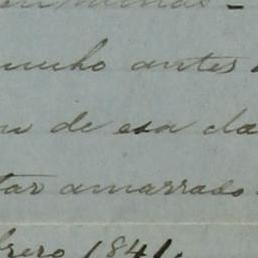 mucho antes
de esa cla
tar amarrado
brero 1841.